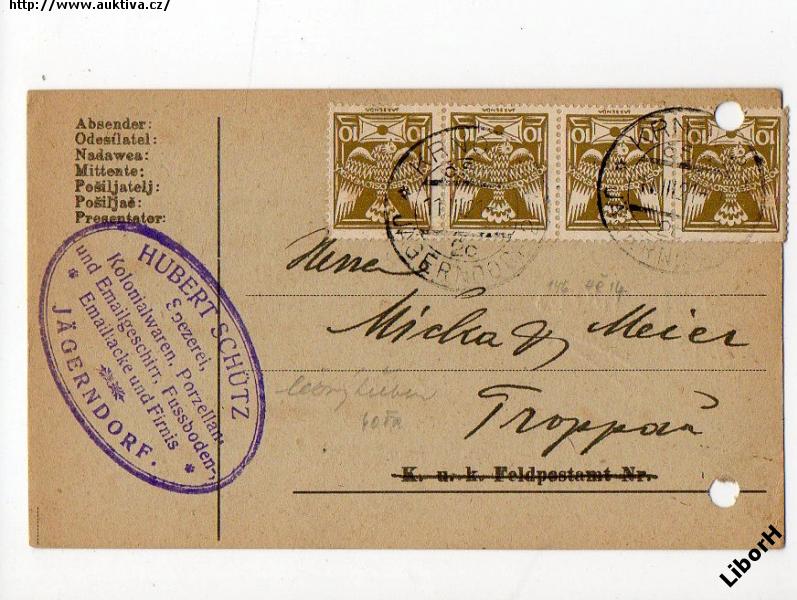 http://www.auktiva.cz/
Absender:
Odesílatel:
Nadawca:
Mittente:
Pošiljatelj:
Pošiljač:
Presentator:
10 10 10 10 10 10 10 10
KRNOV
JÄGERNDORF
HUBERT SCHÜTZ
Spezerei,
Kolonialwaren, Porzellan-
und Emailgeschirr, Fussboden-,
Emaillacke und Firnis
JÄGERNDORF.
Herren
Micka & Meier
Troppau
K. u. k. Feldpostamt Nr.
LiborH